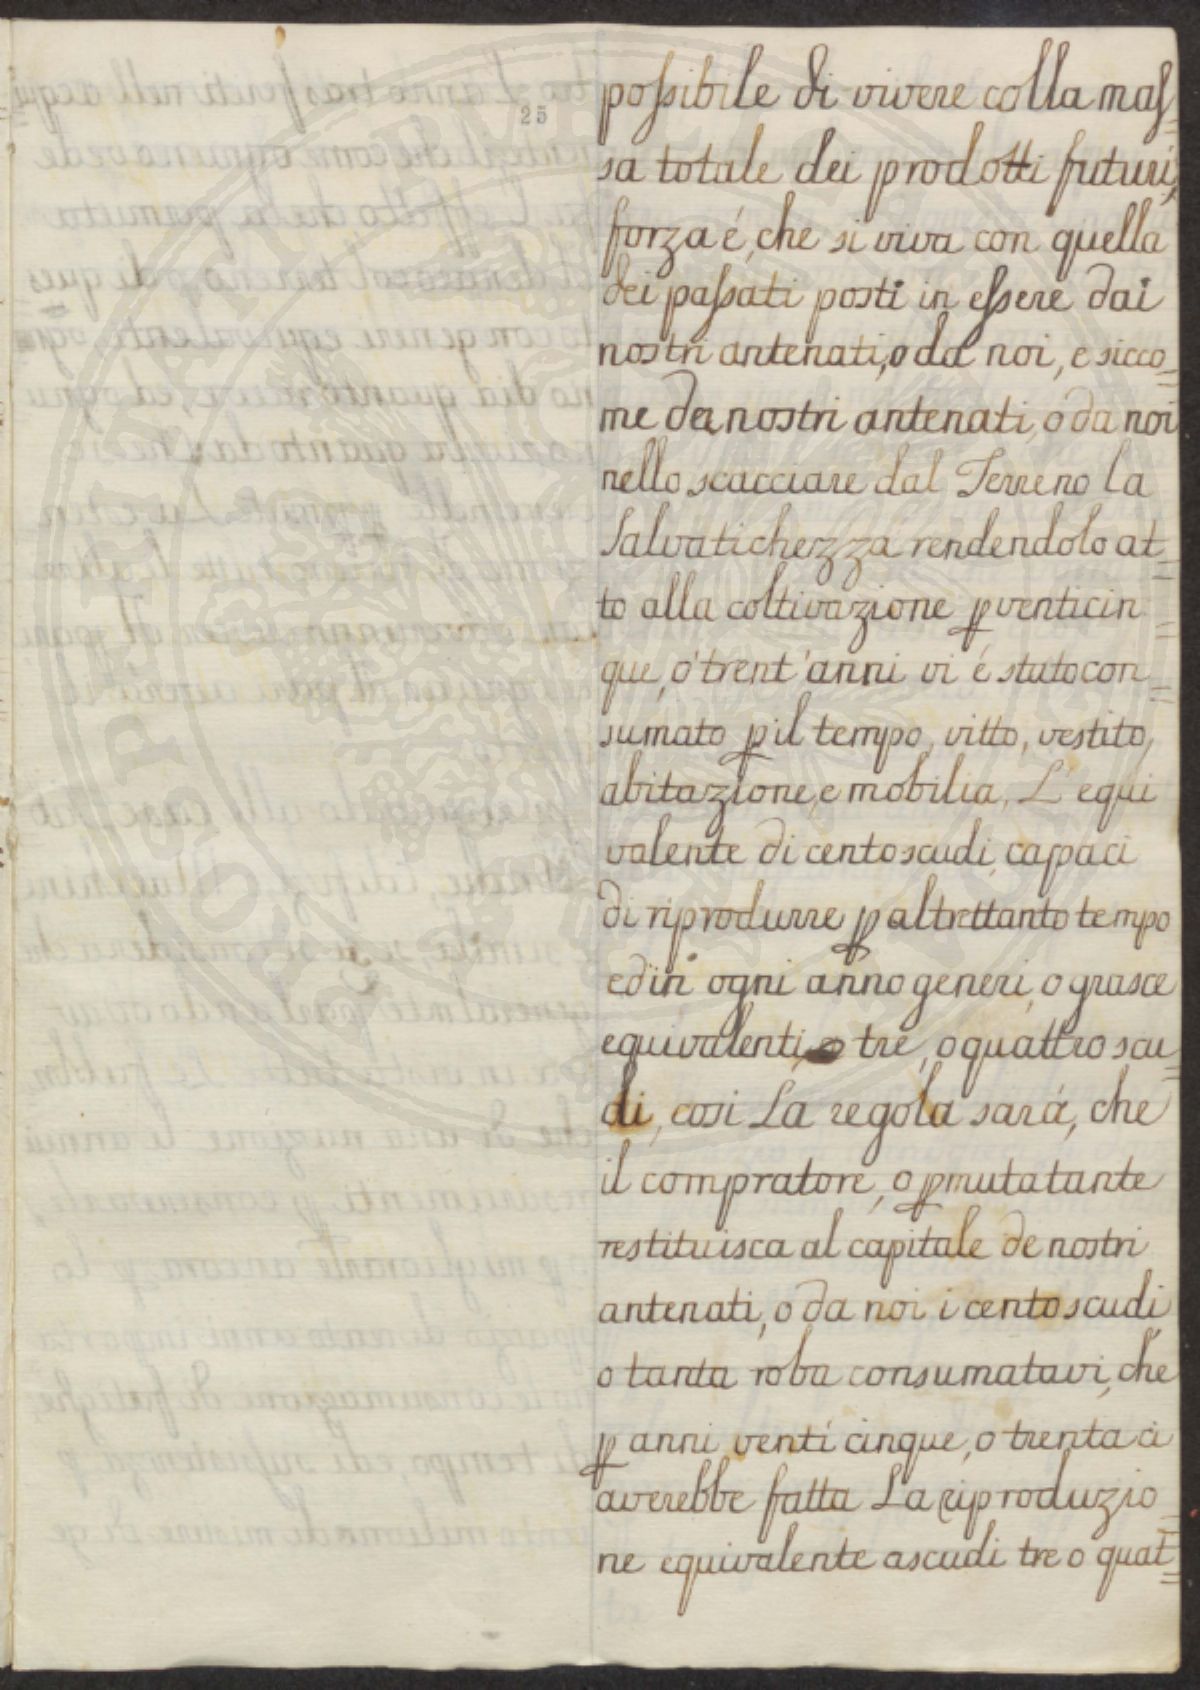 25
possibile di vivere colla mas=
sa totale dei prodotti futuri,
forza é, che si viva con quella
dei passati posti in essere dai
nostri antenati, o da noi, e sicco=
me da nostri antenati, o da noi
nello scacciare dal Terreno la
Salvatichezza rendendolo at=
to alla coltivazione p venticin=
que, o' trent'anni vi é stato con=
sumato p il tempo, vitto, vestito,
abitazione, e mobilia, L'equi
valente di cento scudi, capaci
di riprodurre p altrettanto tempo
ed in ogni anno generi, o grasce
equivalenti, a tre, o quattro scu=
di, cosi La regola sará, che
il compratore, o pmutatante
restituisca al capitale de nostri
antenati, o da noi i cento scudi,
o tanta roba consumatavi, che
p anni venti cinque, o trenta ci
averebbe fatta La riproduzio=
ne equivalente a scudi tre o quat=